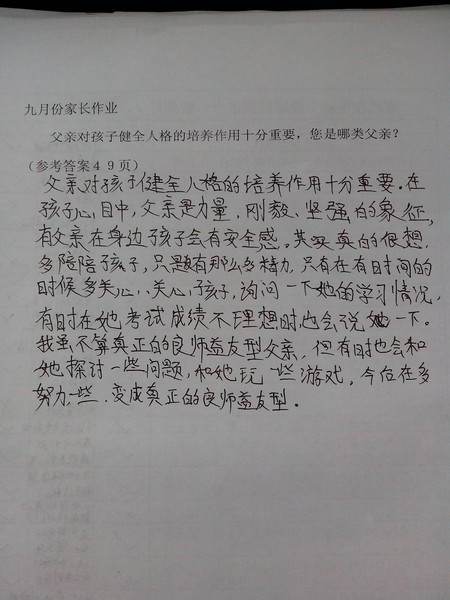 九月份家长作业
父亲对孩子健全人格的培养作用十分重要，您是哪类父亲？
（参考答案49页）
父亲对孩子健全人格的培养作用十分重要。在
孩子心目中，父亲是力量，刚毅、坚强的象征，
有父亲在身边孩子会有安全感。其实真的很想，
多陪陪孩子，只是有那么多精力，只有在有时间的
时候多关心、关心孩子，询问一下她的学习情况，
有时在她考试成绩不理想时也会说她一下。
我虽不算真正的良师益友型父亲，但有时也会和
她探讨一些问题，和她玩一些游戏，今后在多
努力一些，变成真正的良师益友型。